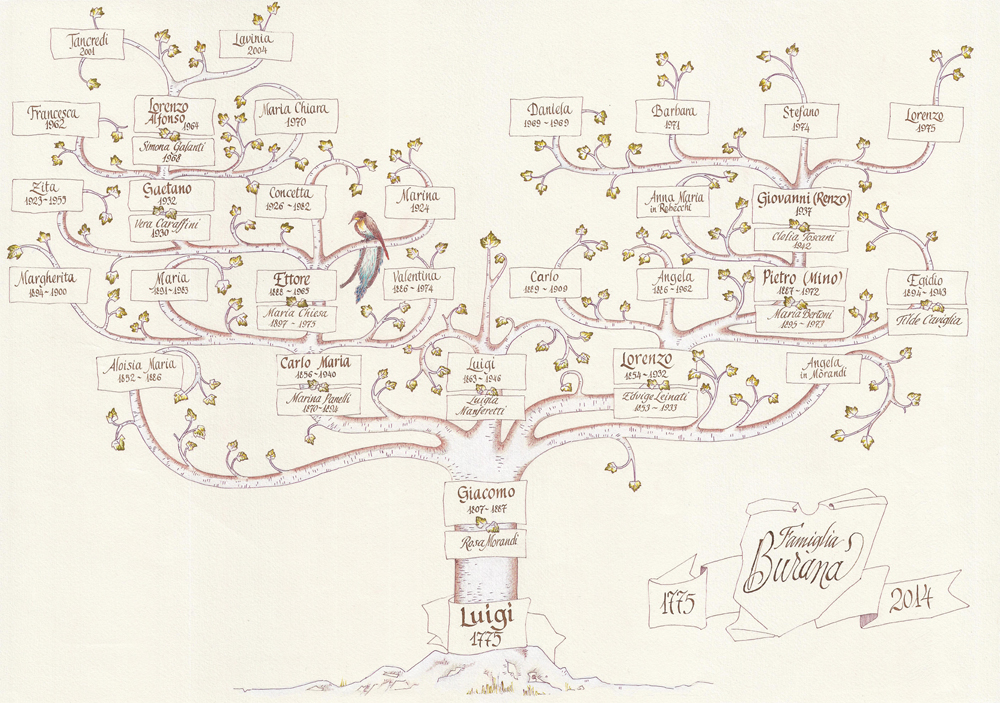 Tancredi
2001
Lavinia
2004
Francesca
1962
Lorenzo
Alfonso 1964
Simona Galanti
1968
Maria Chiara
1970
Daniela
1969~1969
Barbara
1971
Stefano
1974
Lorenzo
1975
Zita
1923~1953
Gaetano
1932
Vera Caraffini
1930
Concetta
1926~1982
Marina
1924
Anna Maria
in Rebecchi
Giovanni (Renzo)
1937
Clelia Toscani
1942
Margherita
1894~1900
Maria
1891~1983
Ettore
1888~1965
Maria Chiesa
1897~1975
Valentina
1886~1974
Carlo
1889~1909
Angela
1886~1962
Pietro (Mino)
1887~1972
Maria Bertoni
1895~1973
Egidio
1894~1943
Tilde Caviglia
Aloisia Maria
1852~1886
Carlo Maria
1856~1940
Marina Panelli
1870~1894
Luigi
1863~1946
Luigia
Manferetti
Lorenzo
1854~1932
Edvige Leinati
1853~1933
Angela
in Morandi
Giacomo
1807~1887
Rosa Morandi
Luigi
1775
Famiglia
Burana
1775
2014